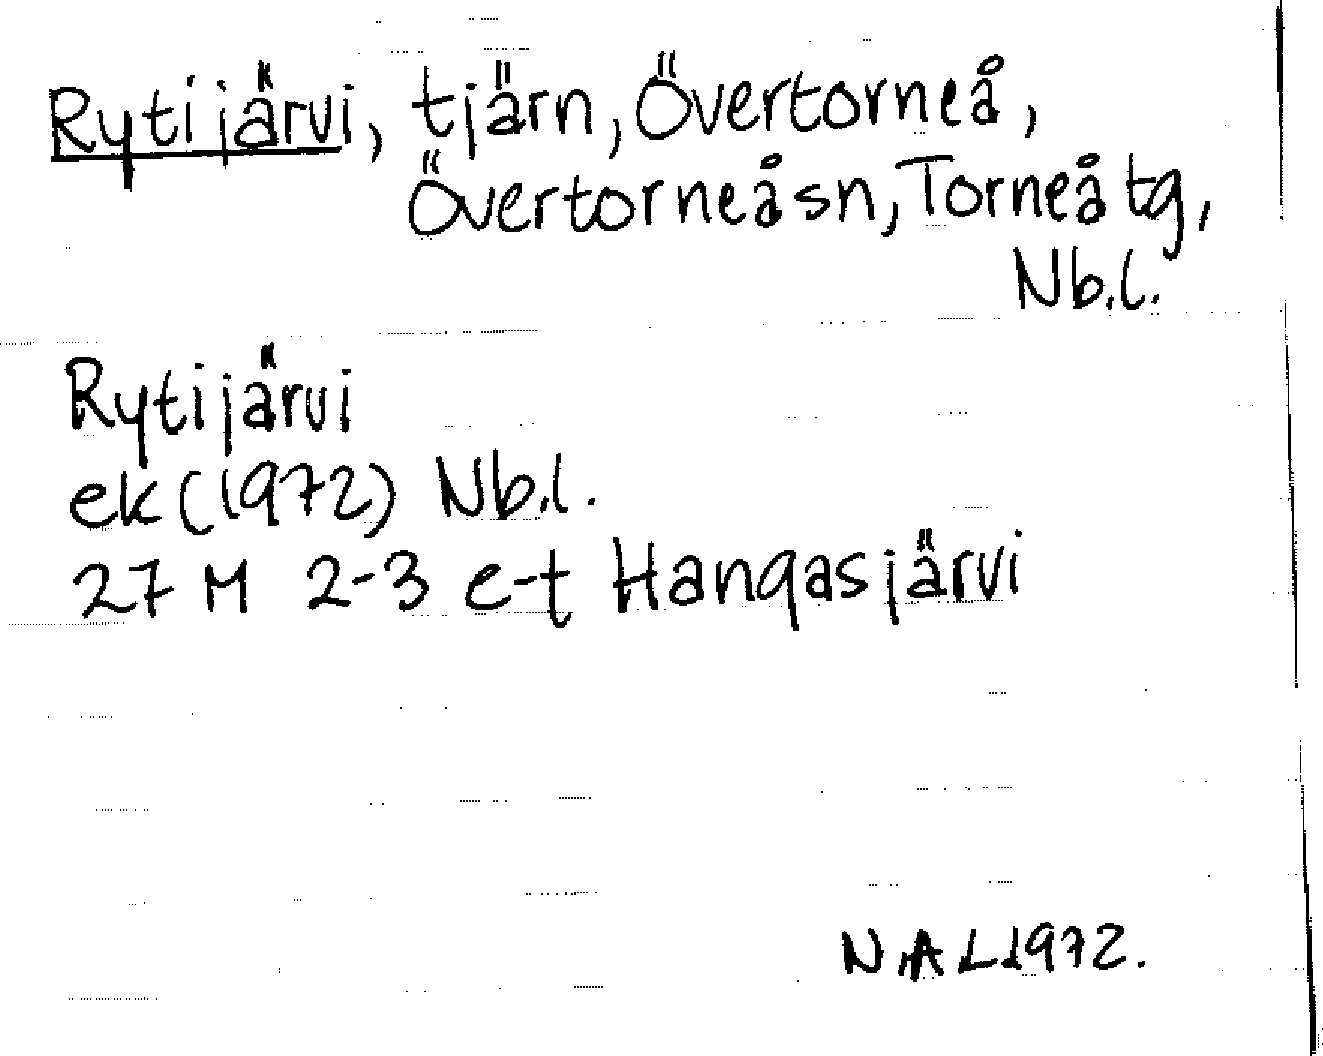 Rytijärvi, tjärn, Övertorneå,
Övertorneå sn, Torneå tg,
Nb.l.
Rytijärvi
ek (1972) Nb.l.
27 M 2-3 e-t Hangasjärvi
NAL 1972.